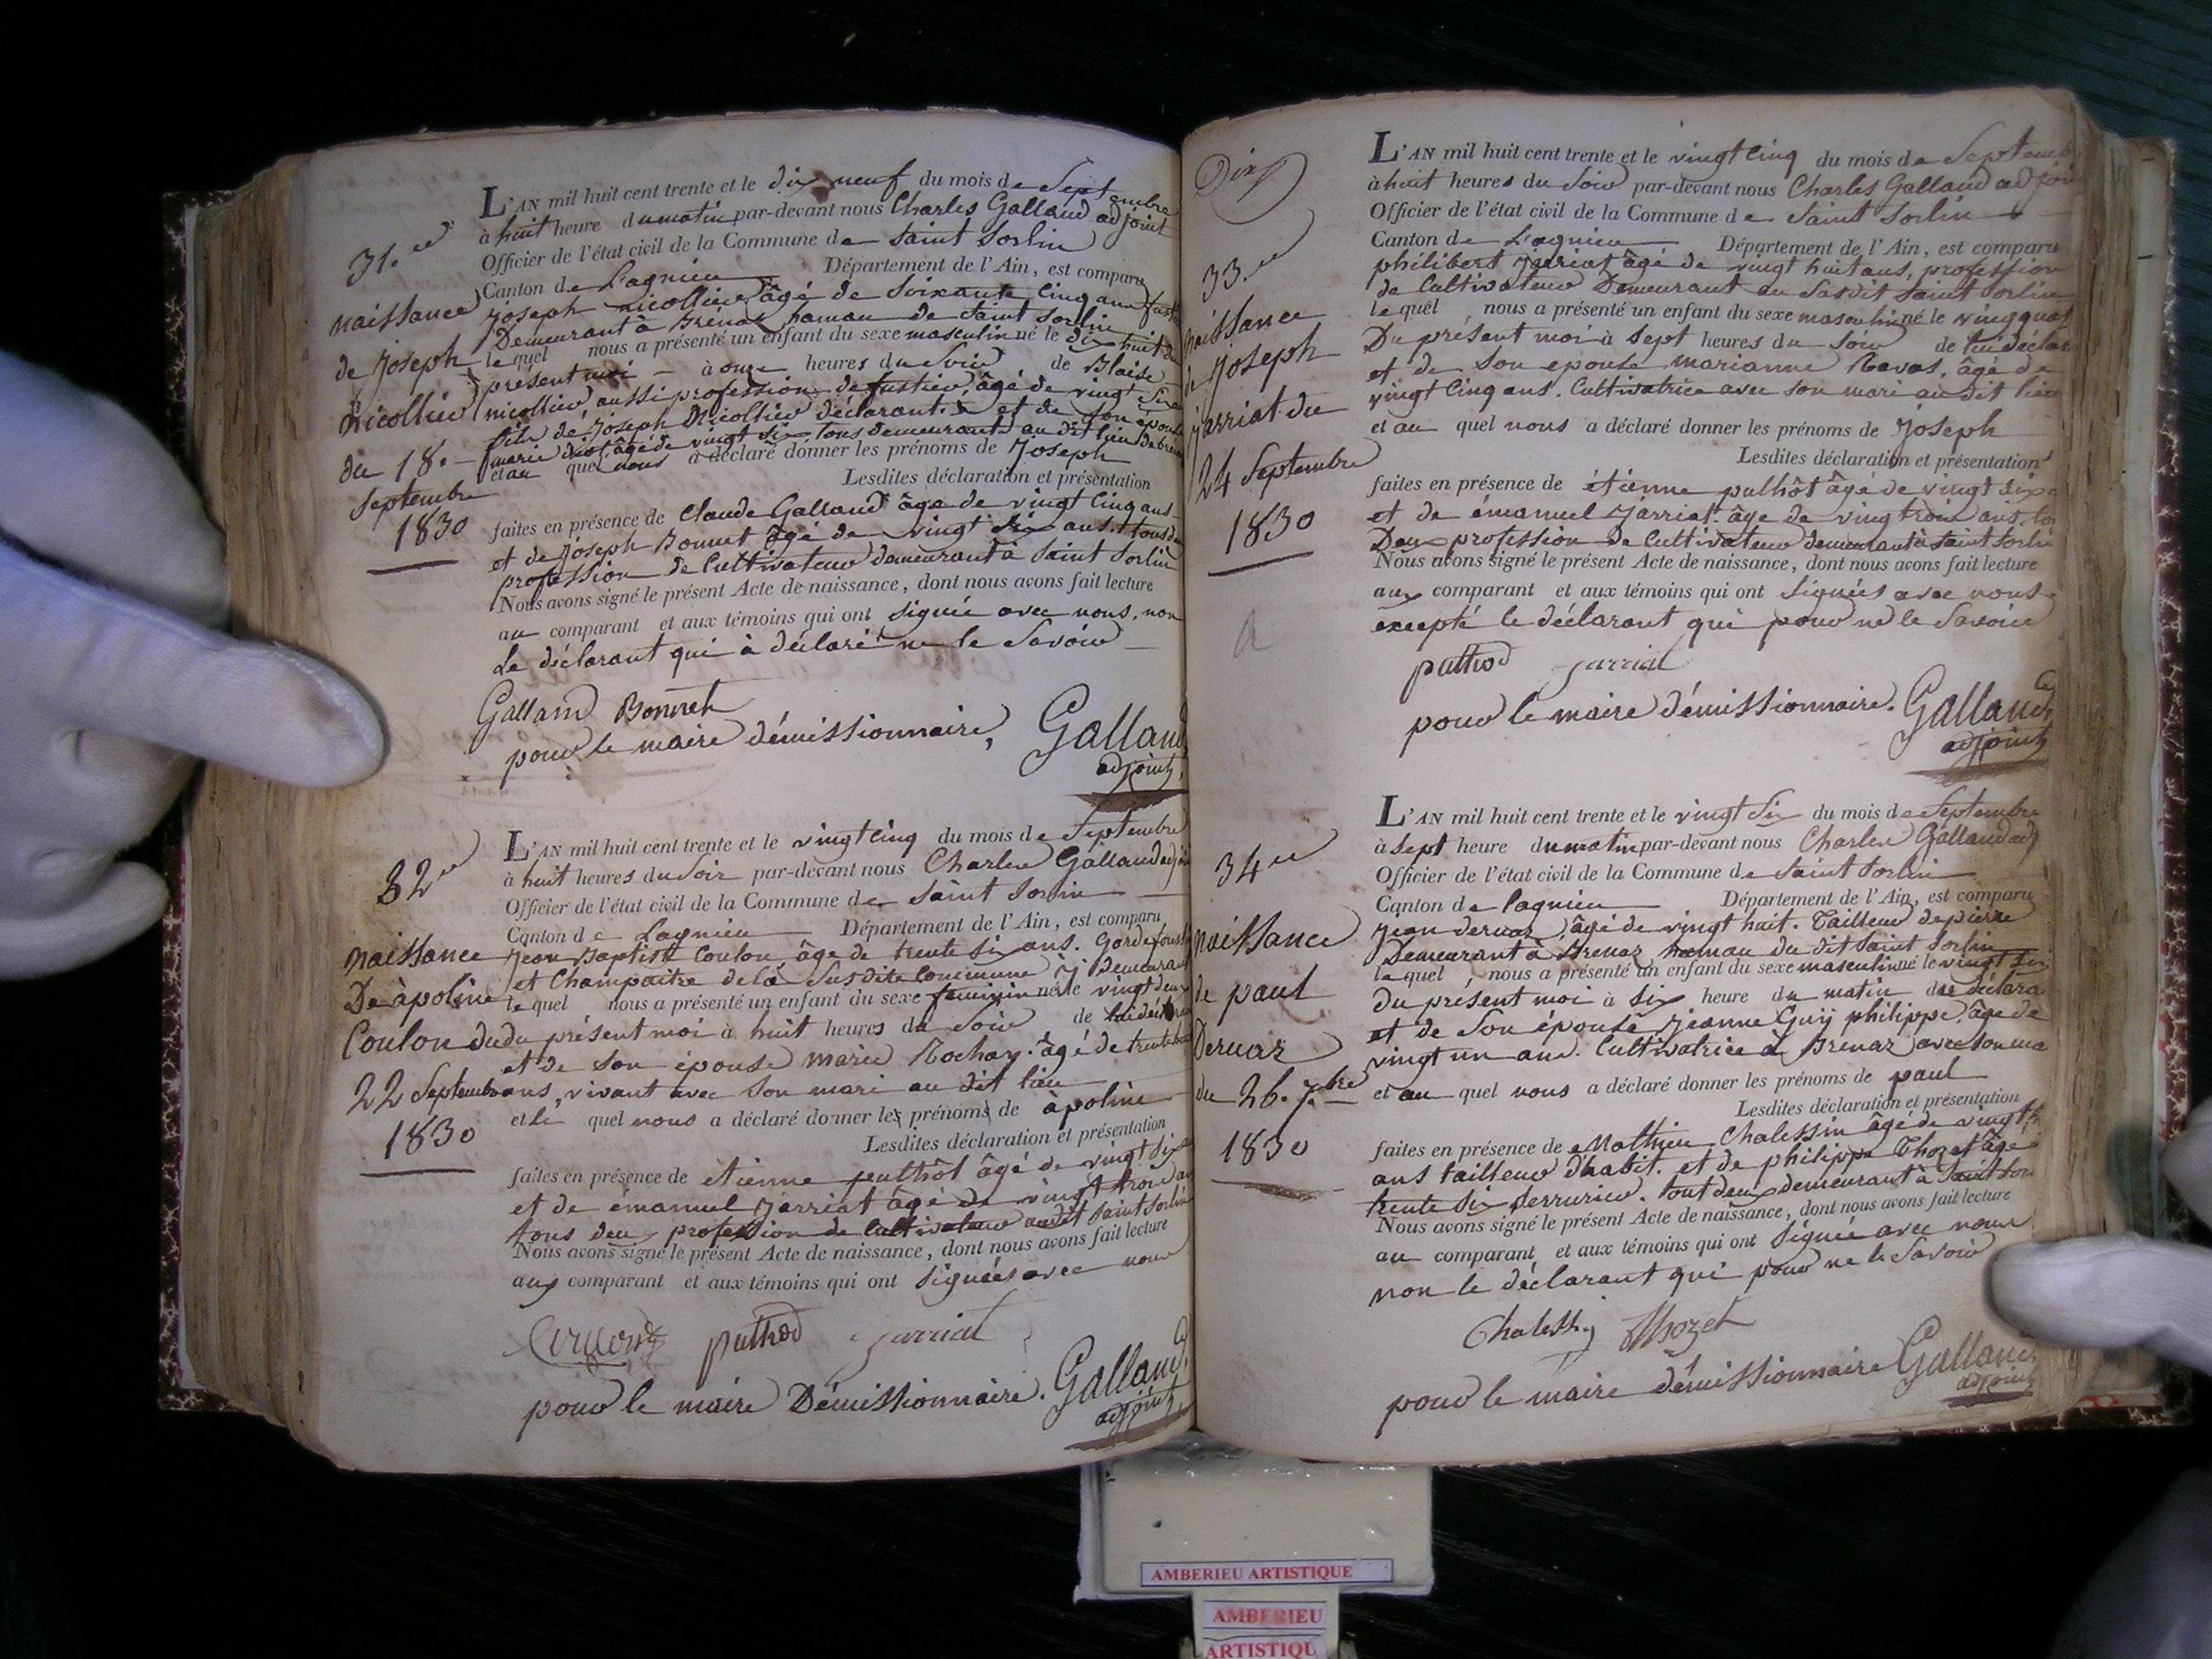 31.me
naissance
de Joseph
Nicollier
du 18.
Septembre
1830
L'AN mil huit cent trente et le dix neuf du mois de Septembre
à huit heure du matin par-devant nous Charles Galland adjoint
Officier de l'état civil de la Commune de Saint Sorlin
Canton de Lagnieu Département de l'Ain, est comparu
Joseph nicollier âgé de Soixante cinq ans
Demeurant à Brénaz hamau de Saint Sorlin
le quel nous a présenté un enfant du sexe masculin né le dix huit du
présent moi à onze heures du Soir de Blaise
nicollier aussi profession de fustier, âgé de vingt
fils de Joseph Nicollier déclarant et de Son épouse
marie âgé de vingt six, tous demeurant au dit lieu de
et au quel nous a déclaré donner les prénoms de Joseph
Lesdites déclaration et présentation
faites en présence de Claude Galland âgé de vingt Cinq ans
et de Joseph Bonnet âgé de vingt Six ans. tous de
profession de Cultivateur demeurant à Saint Sorlin
Nous avons signé le présent Acte de naissance, dont nous avons fait lecture
au comparant et aux témoins qui ont signée avec nous, non
Le déclarant qui à déclaré ne le Savoir
Galland Bonnet
pour le maire démissionnaire, Galland
adjoint,
32me
naissance
De àpoline
Coulon du
22 Septembre
1830
L'AN mil huit cent trente et le vingt cinq du mois de Septembre
à huit heures du Soir par-devant nous Charles Galland adj
Officier de l'état civil de la Commune de Saint Sorlin
Canton de Lagnieu Département de l'Ain, est comparu
Jean Baptiste Coulon, âge de trente Six ans. Garde
et Champaitre de là Susdite Commune y Demeurant
le quel nous a présenté un enfant du sexe feminin né le vingt deux
du présent moi à huit heures du Soir de lui
et de Son épouse marie Rochay. âgé de trente
ans, vivant avec Son mari au dit lieu
et à quel nous a déclaré donner les prénoms de àpoline
Lesdites déclaration et présentation
faites en présence de étienne puthôt âgé de vingt Six
et de émanuel Jarriat âgé de vingt trois an
tous deux profession de Cultivateur audit Saint Sorlin
Nous avons signé le présent Acte de naissance, dont nous avons fait lecture
aux comparant et aux témoins qui ont Signées avec nous
puthod Jarriat
pour le maire Démissionnaire. Galland
adjoint,
Dix
33.me
naissance
de Joseph
Jarriat du
24 Septembre
1830
L'AN mil huit cent trente et le vingt Cinq du mois de Septemb
à huit heures du Soir par-devant nous Charles Galland adjoin
Officier de l'état civil de la Commune de Saint Sorlin
Canton de Lagnieu Département de l'Ain, est comparu
philibert Jarriat âgé de vingt huit ans, profession
de Cultivateur Demeurant au Susdit Saint Sorlin
le quel nous a présenté un enfant du sexe masculin né le vingt quat
Du présent moi à Sept heures du Soir de lui déclar
et de Son epouse marianne Ravas, âgé de
vingt Cinq ans. Cultivatrice avec son mari audit lieu
et au quel nous a déclaré donner les prénoms de Joseph
Lesdites déclaration et présentation
faites en présence de étienne puthôt âgé de vingt Six
et de émanuel Jarriat. âge de vingt trois ans.
Deux profession de Cultivateur demeurant à Saint Sorlin
Nous avons signé le présent Acte de naissance, dont nous avons fait lecture
aux comparant et aux témoins qui ont Signées avec nous
excepté le déclarant qui pour ne le Savoir
puthod Jarriat
pour le maire démissionnaire. Galland
adjoint
34me
naissance
de paul
Dervaz
du 26. 7.bre
1830
L'AN mil huit cent trente et le vingt Six du mois de Septembre
à Sept heure du matin par-devant nous Charles Galland adj
Officier de l'état civil de la Commune de Saint Sorlin
Canton de Lagnieu Département de l'Ain, est comparu
Jean Dervaz, âgé de vingt huit. Tailleur de pierre
Demeurant à Brénaz hamau du dit Saint Sorlin
le quel nous a présenté un enfant du sexe masculin né le vingt Six
du présent moi à Six heure du matin de déclara
et de Son épouse Jeanne Guy philippe. âge de
vingt un ans. Cultivatrice à Brénaz avec son ma
et au quel nous a déclaré donner les prénoms de paul
Lesdites déclaration et présentation
faites en présence de Mathieu Chalessin âgé de vingt
ans tailleur d'habit. et de philippe Thozet âge
trente Six Serrurier. tout deux demeurant à Saint Sor
Nous avons signé le présent Acte de naissance, dont nous avons fait lecture
au comparant et aux témoins qui ont Signée avec nous
non le déclarant qui pour ne le Savoir
Chalessin Thozet
pour le maire démissionnaire Galland
adjoint
AMBERIEU ARTISTIQUE
AMBERIEU
ARTISTIQU